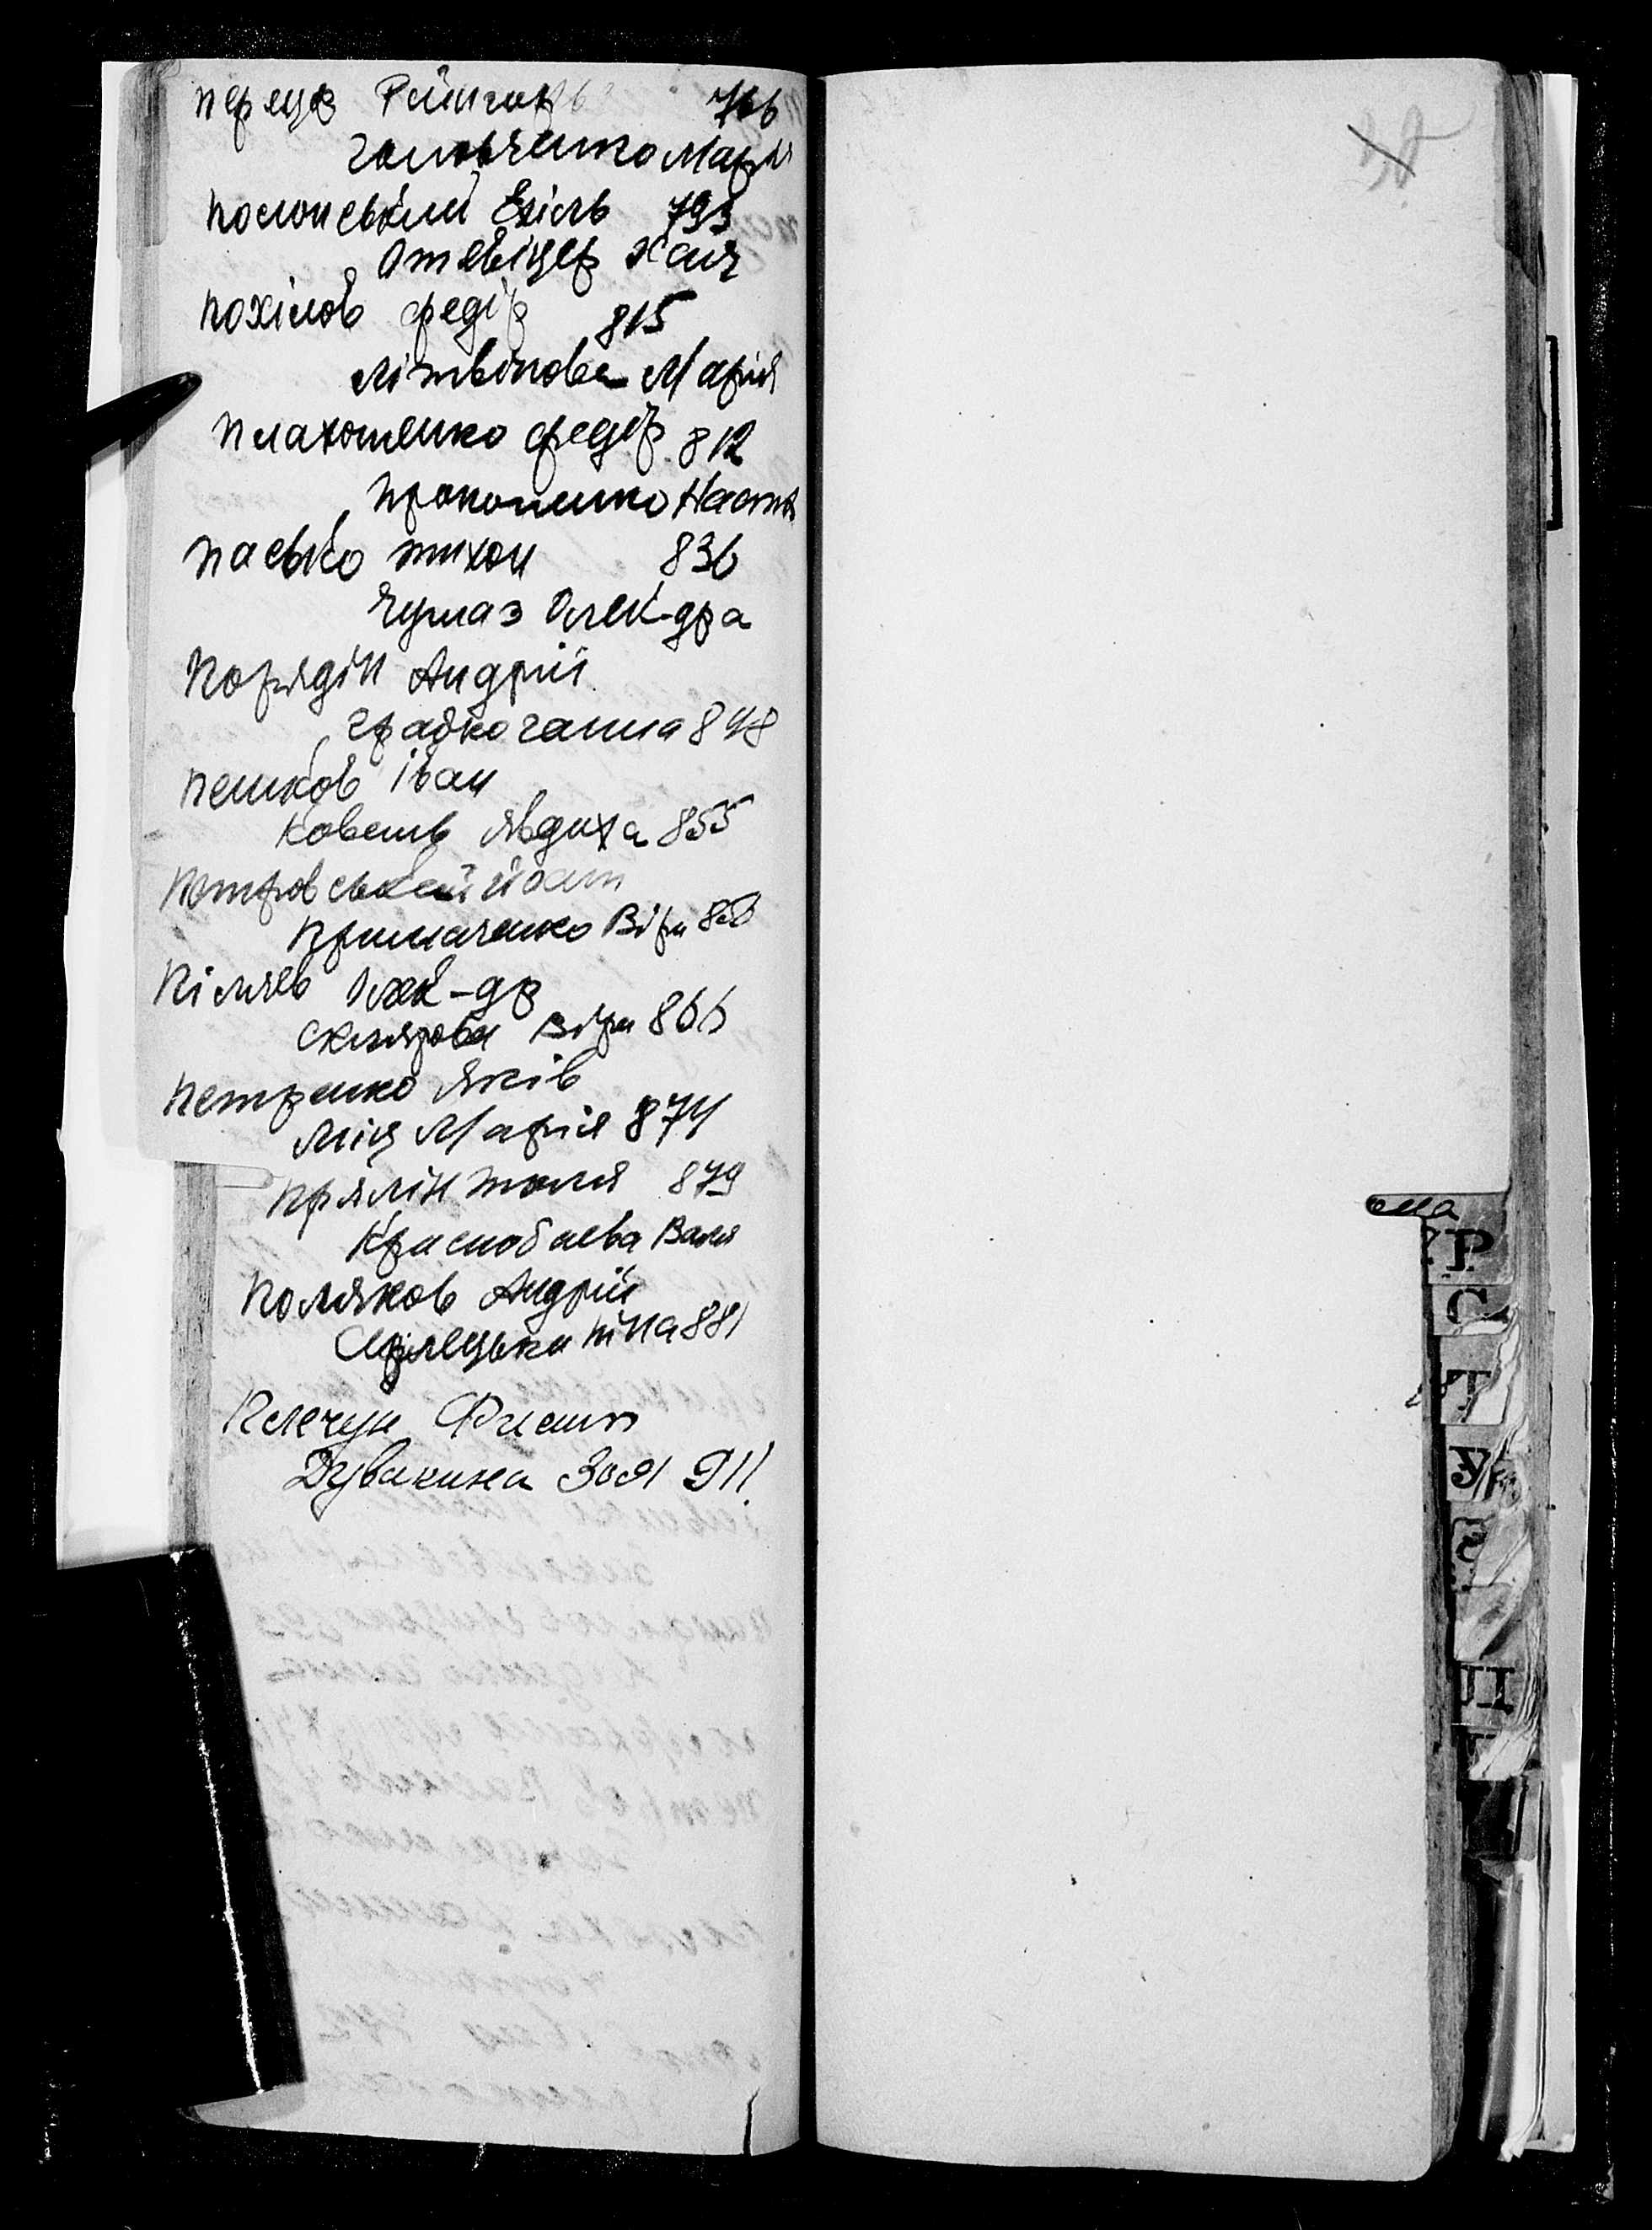 Перецв 766
Головченко Марія
Полонський Ехіль 793
Отевіцер Хая
Похілов Федір 815
Літвінова Марія
Плахотенко Федір 812
Прокопенко Настя
Пасько Тихон 836
Чумаз Олек-дра
Порядін Андрій
Градко Ганна 848
Пешков Іван
Ковень Явдиха 855
Петровський
Примаченко Віра
Піляєв Олек-др
Склярова Віра 866
Петренко Яків
Марія 874
Прялін Толя 879
Краснобаєва Валя
Поляков Андрій
Ніна 881
Пелечун Филип
Дувакина Зоя 911
Р
С
Т
У
Ц